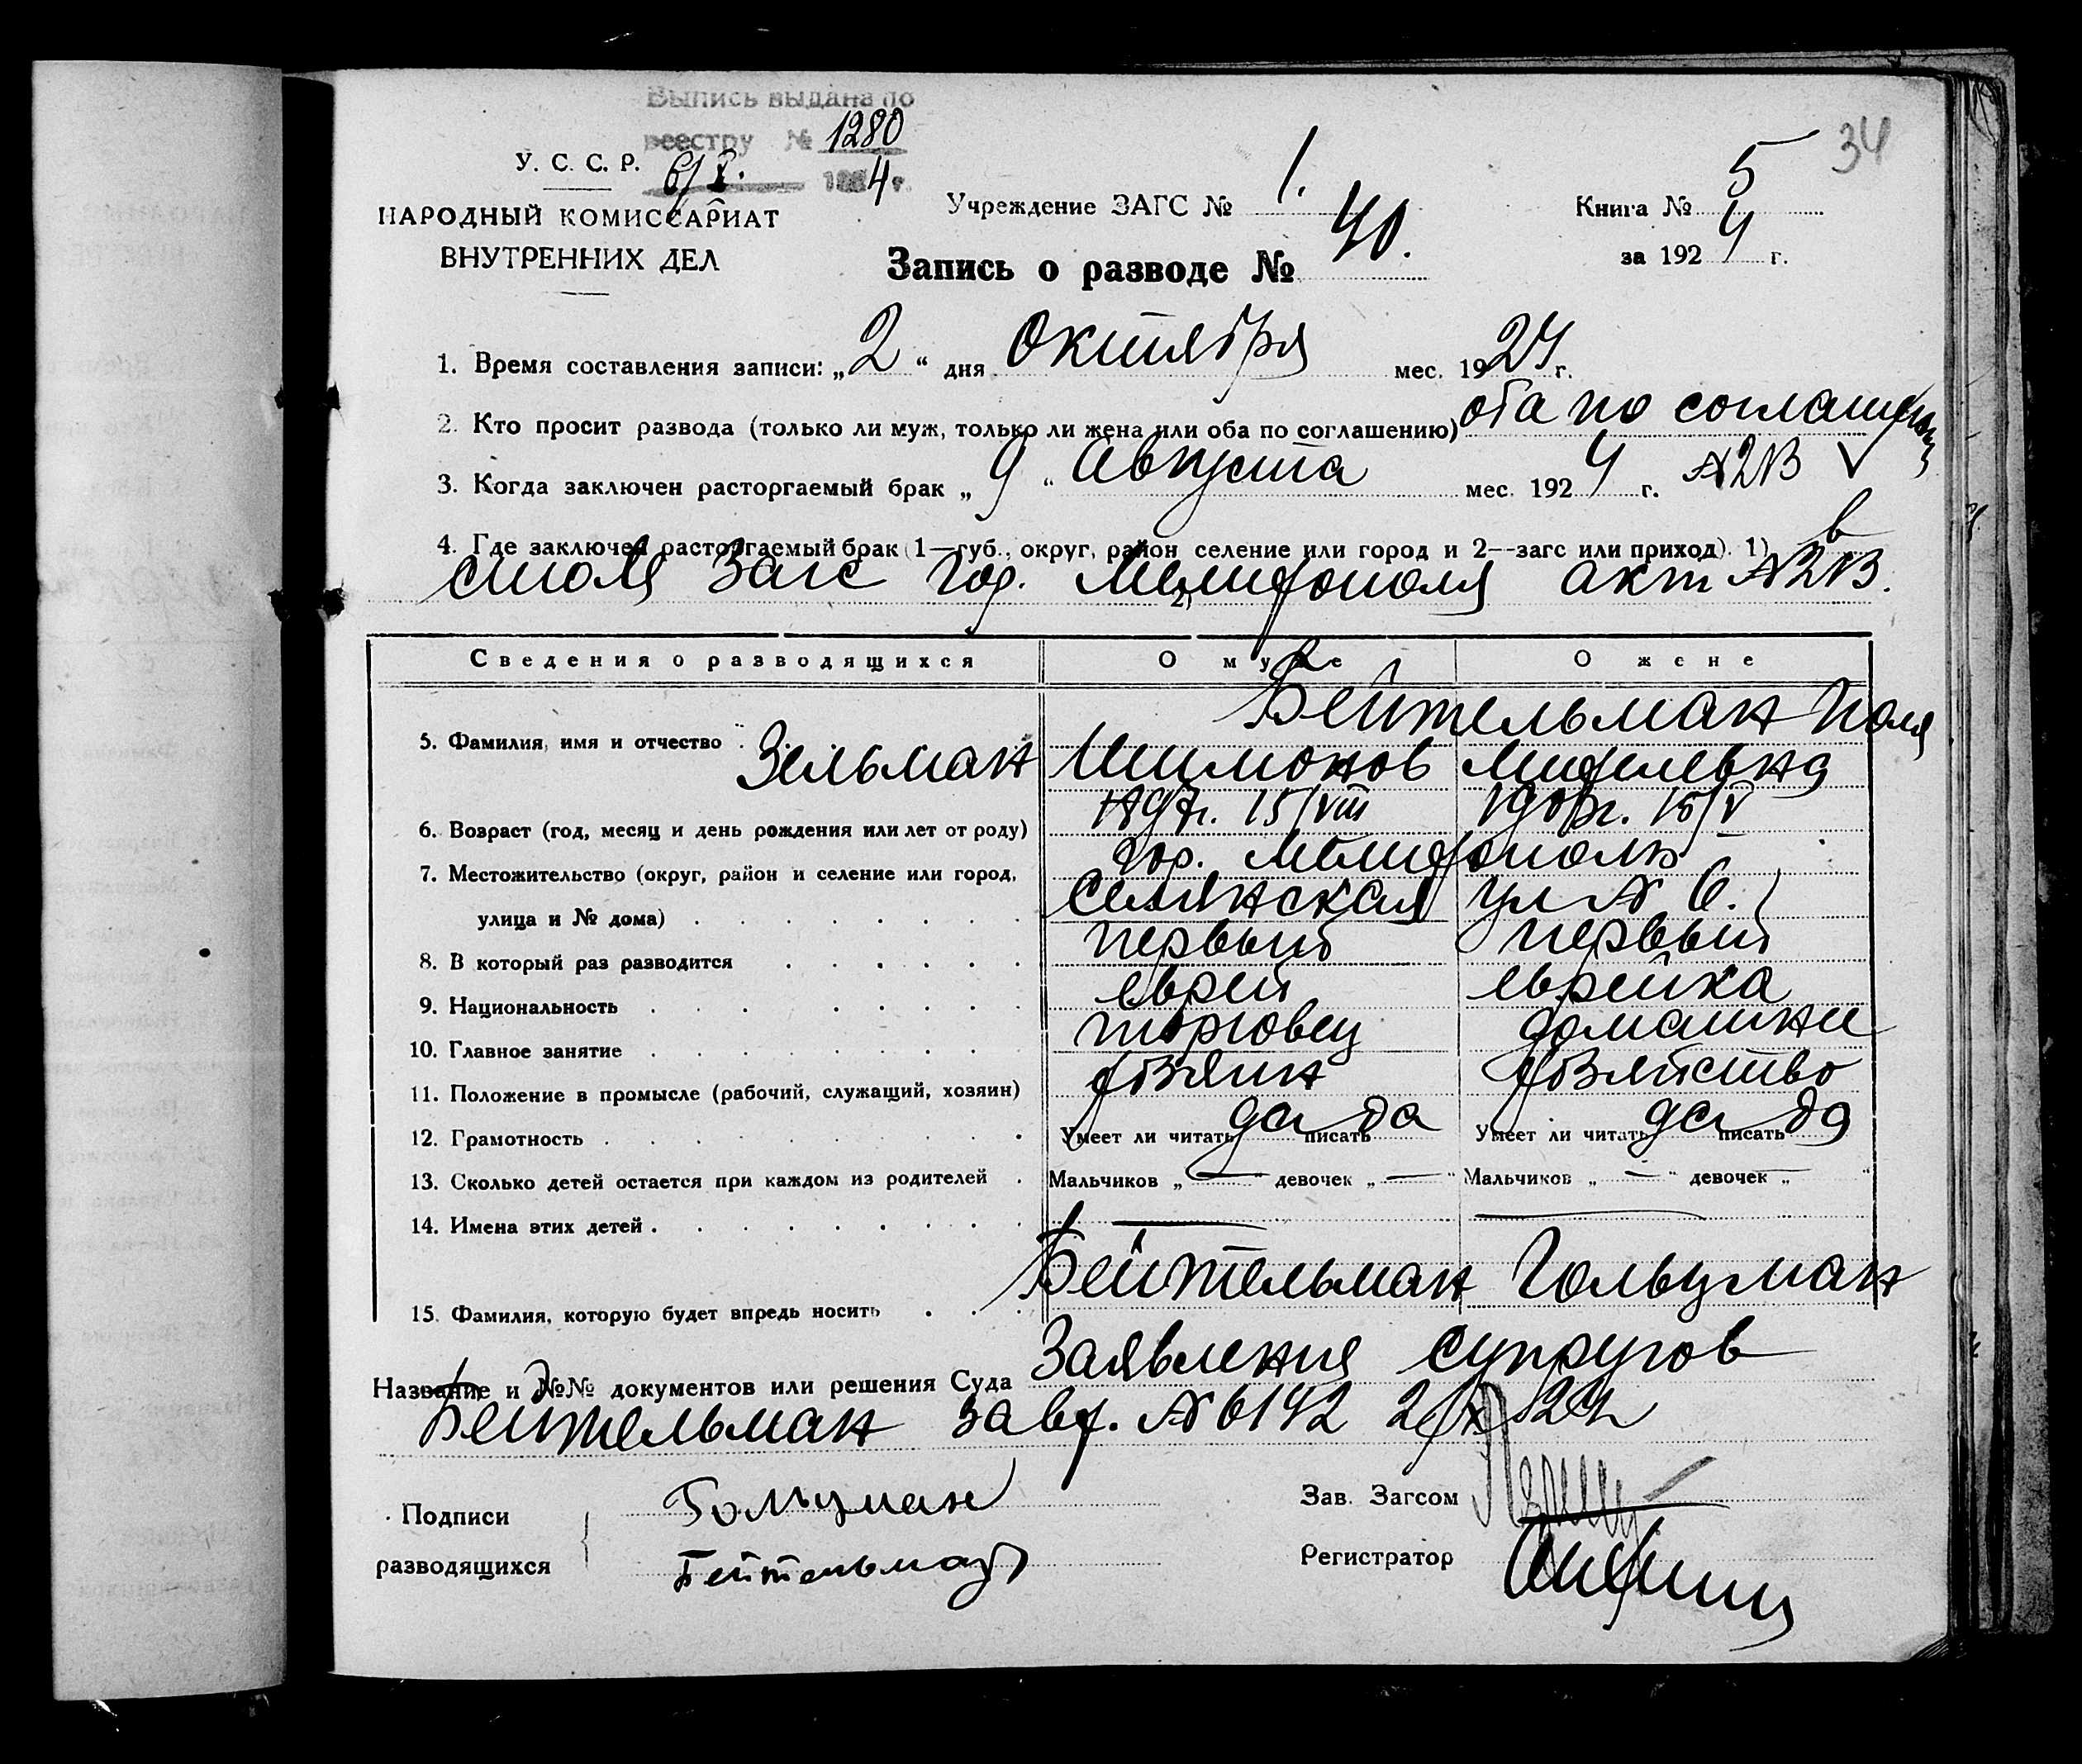 Выпись выдана по
реестру № 1280
34
У. С. С. Р.
6/X. 1924 г.
Учреждение ЗАГС № 1.
Книга № 5
НАРОДНЫЙ КОМИССАРИАТ
ВНУТРЕННИХ ДЕЛ
за 1924 г.
Запись о разводе № 40.
1. Время составления записи: „2“ дня Октября мес. 1924 г.
2. Кто просит развода (только ли муж, только ли жена или оба по соглашению) оба по соглашению
3. Когда заключен расторгаемый брак „9“ Августа мес. 1924 г.
4. Где заключен расторгаемый брак (1—губ., округ, район селение или город и 2--загс или приход). 1) в
столе Загс гор. Мелитополя акт
2)
Сведения о разводящихся О муже О жене
Бейтельман Поля
5. Фамилия, имя и отчество Зельман Шимонов
6. Возраст (год, месяц и день рождения или лет от роду) 1897г. 15/VIII
гор. Мелитополь
7. Местожительство (округ, район и селение или город,
улица и № дома) ул № 6.
8. В который раз разводится первый первый
9. Национальность еврей еврейка
10. Главное занятие торговец домашнее
11. Положение в промысле (рабочий, служащий, хозяин) хозяин хозяйство
12. Грамотность Умеет ли читать да писать да Умеет ли читать да писать да
13. Сколько детей остается при каждом из родителей Мальчиков „—“ девочек „—“ Мальчиков „—“ девочек „ “
14. Имена этих детей — —
15. Фамилия, которую будет впредь носить Бейтельман Гольцман
Название и №№ документов или решения Суда Заявления супругов
Бейтельман за вх. № 6142 2/X 24г
Подписи Гольцман
Зав. Загсом
разводящихся Бейтельман
Регистратор